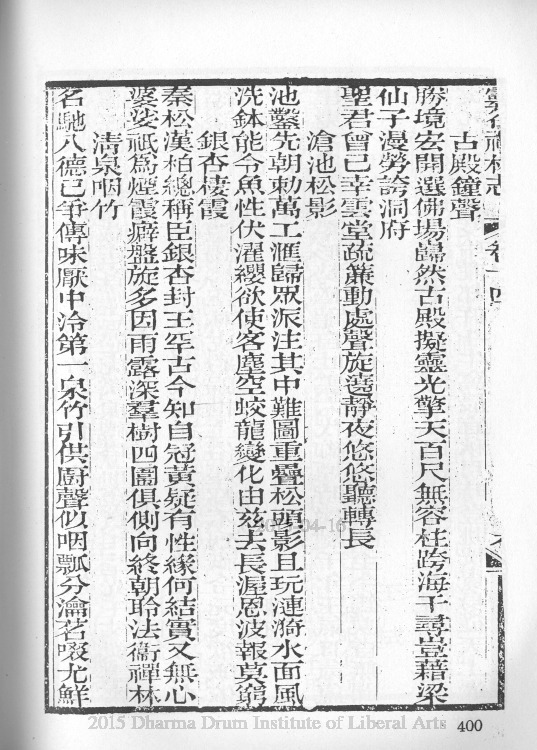 雲居禪林志
卷十四
古殿鐘聲
勝境宏開選佛場巋然古殿擬靈光擎天百尺無容柱跨海千尋豈藉梁
仙子漫勞誇洞府
聖君曾已幸雲堂疏簾動處聲旋遶靜夜悠悠聽轉長
滄池松影
池鑿先朝勅萬工滙歸眾派注其中難圖重疊松頭影且玩漣漪水面風
洗鉢能令魚性伏濯纓欲使客塵空蛟龍變化由茲去長渥恩波報莫窮
銀杏棲霞
秦松漢柏總稱臣銀杏封王罕古今知自冠黃疑有性緣何結實又無心
婆娑祇為煙霞癖盤旋多因雨露深羣樹四圍俱側向終朝聆法衛禪林
清泉咽竹
名馳八德已爭傳味厭中泠第一泉竹引供廚聲似咽瓢分瀹茗啜尤鮮
2015 Dharma Drum Institute of Liberal Arts
400